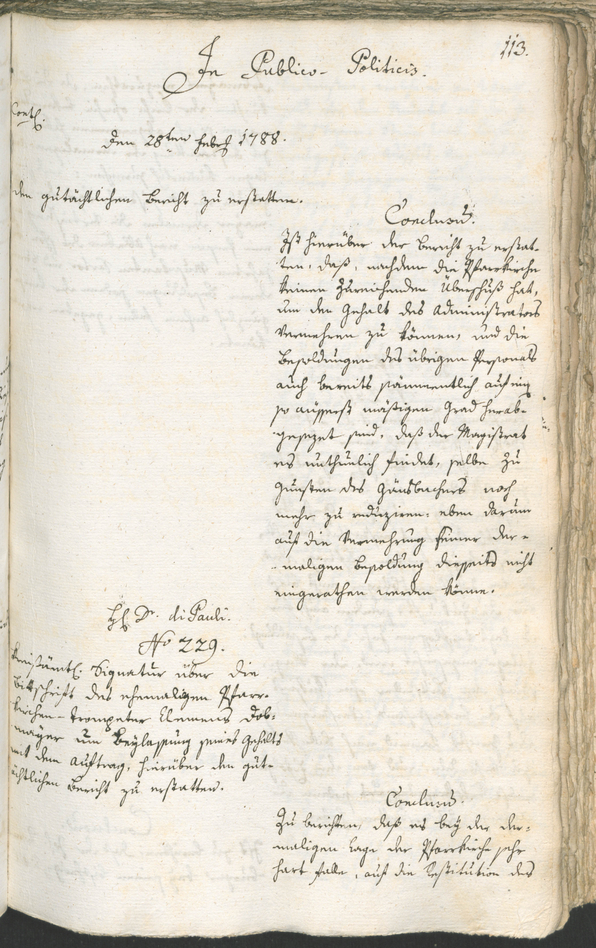 113.
In Publico-Politicis.
Cont.
den 28ten Febr. 1788.
den gutächtlichen Bericht zu erstatten.
Conclusum.
Ist hierüber der Bericht zu erstat-
ten, daß, nachdem die Pfarrkirche
keinen zureichenden Uberschuß hat,
um den Gehalt des Administrators
vermehren zu können, und die
Besoldungen des übrigen Personals
auch bereits sämmentlich auf einen
so äusserst mäßigen Grad herab-
gesezet sind, daß der Magistrat
es unthunlich findet, selbe zu
Gunsten des Gänsbachers noch
mehr zu reduziren: eben darum
auf die Vermehrung seiner der-
maligen Besoldung diesseits nicht
eingerathen werden könne.
H. Dr. di Pauli.
No 229.
Kreisämtl. Signatur über die
Bittschrift des ehemaligen Pfarr-
kirchen-Trompeter Clemens Dob-
mayer um Beylassung seines Gehalts
mit dem Auftrag, hierüber den gut-
ächtlichen Bericht zu erstatten.
Conclusum.
Zu berichten, daß es bey der der-
maligen Lage der Pfarrkirche sehr
hart falle, auf die Restitution des